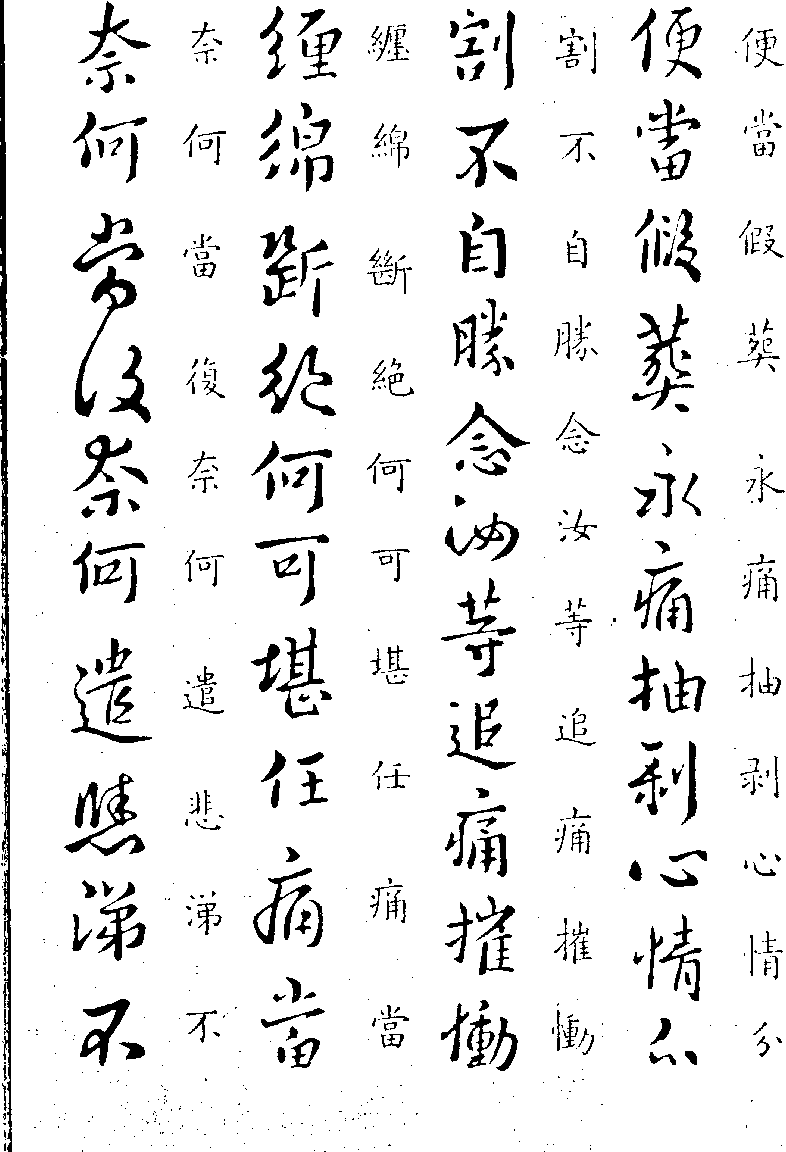 便當假葬永痛抽剥心情分
便當假葬永痛抽剥心情分
割不自勝念汝等追痛摧慟
割不自勝念汝等追痛摧慟
纏綿斷絕何可堪任痛當
纏綿斷絕何可堪任痛當
奈何當復奈何遣悲涕不
奈何當復奈何遣悲涕不